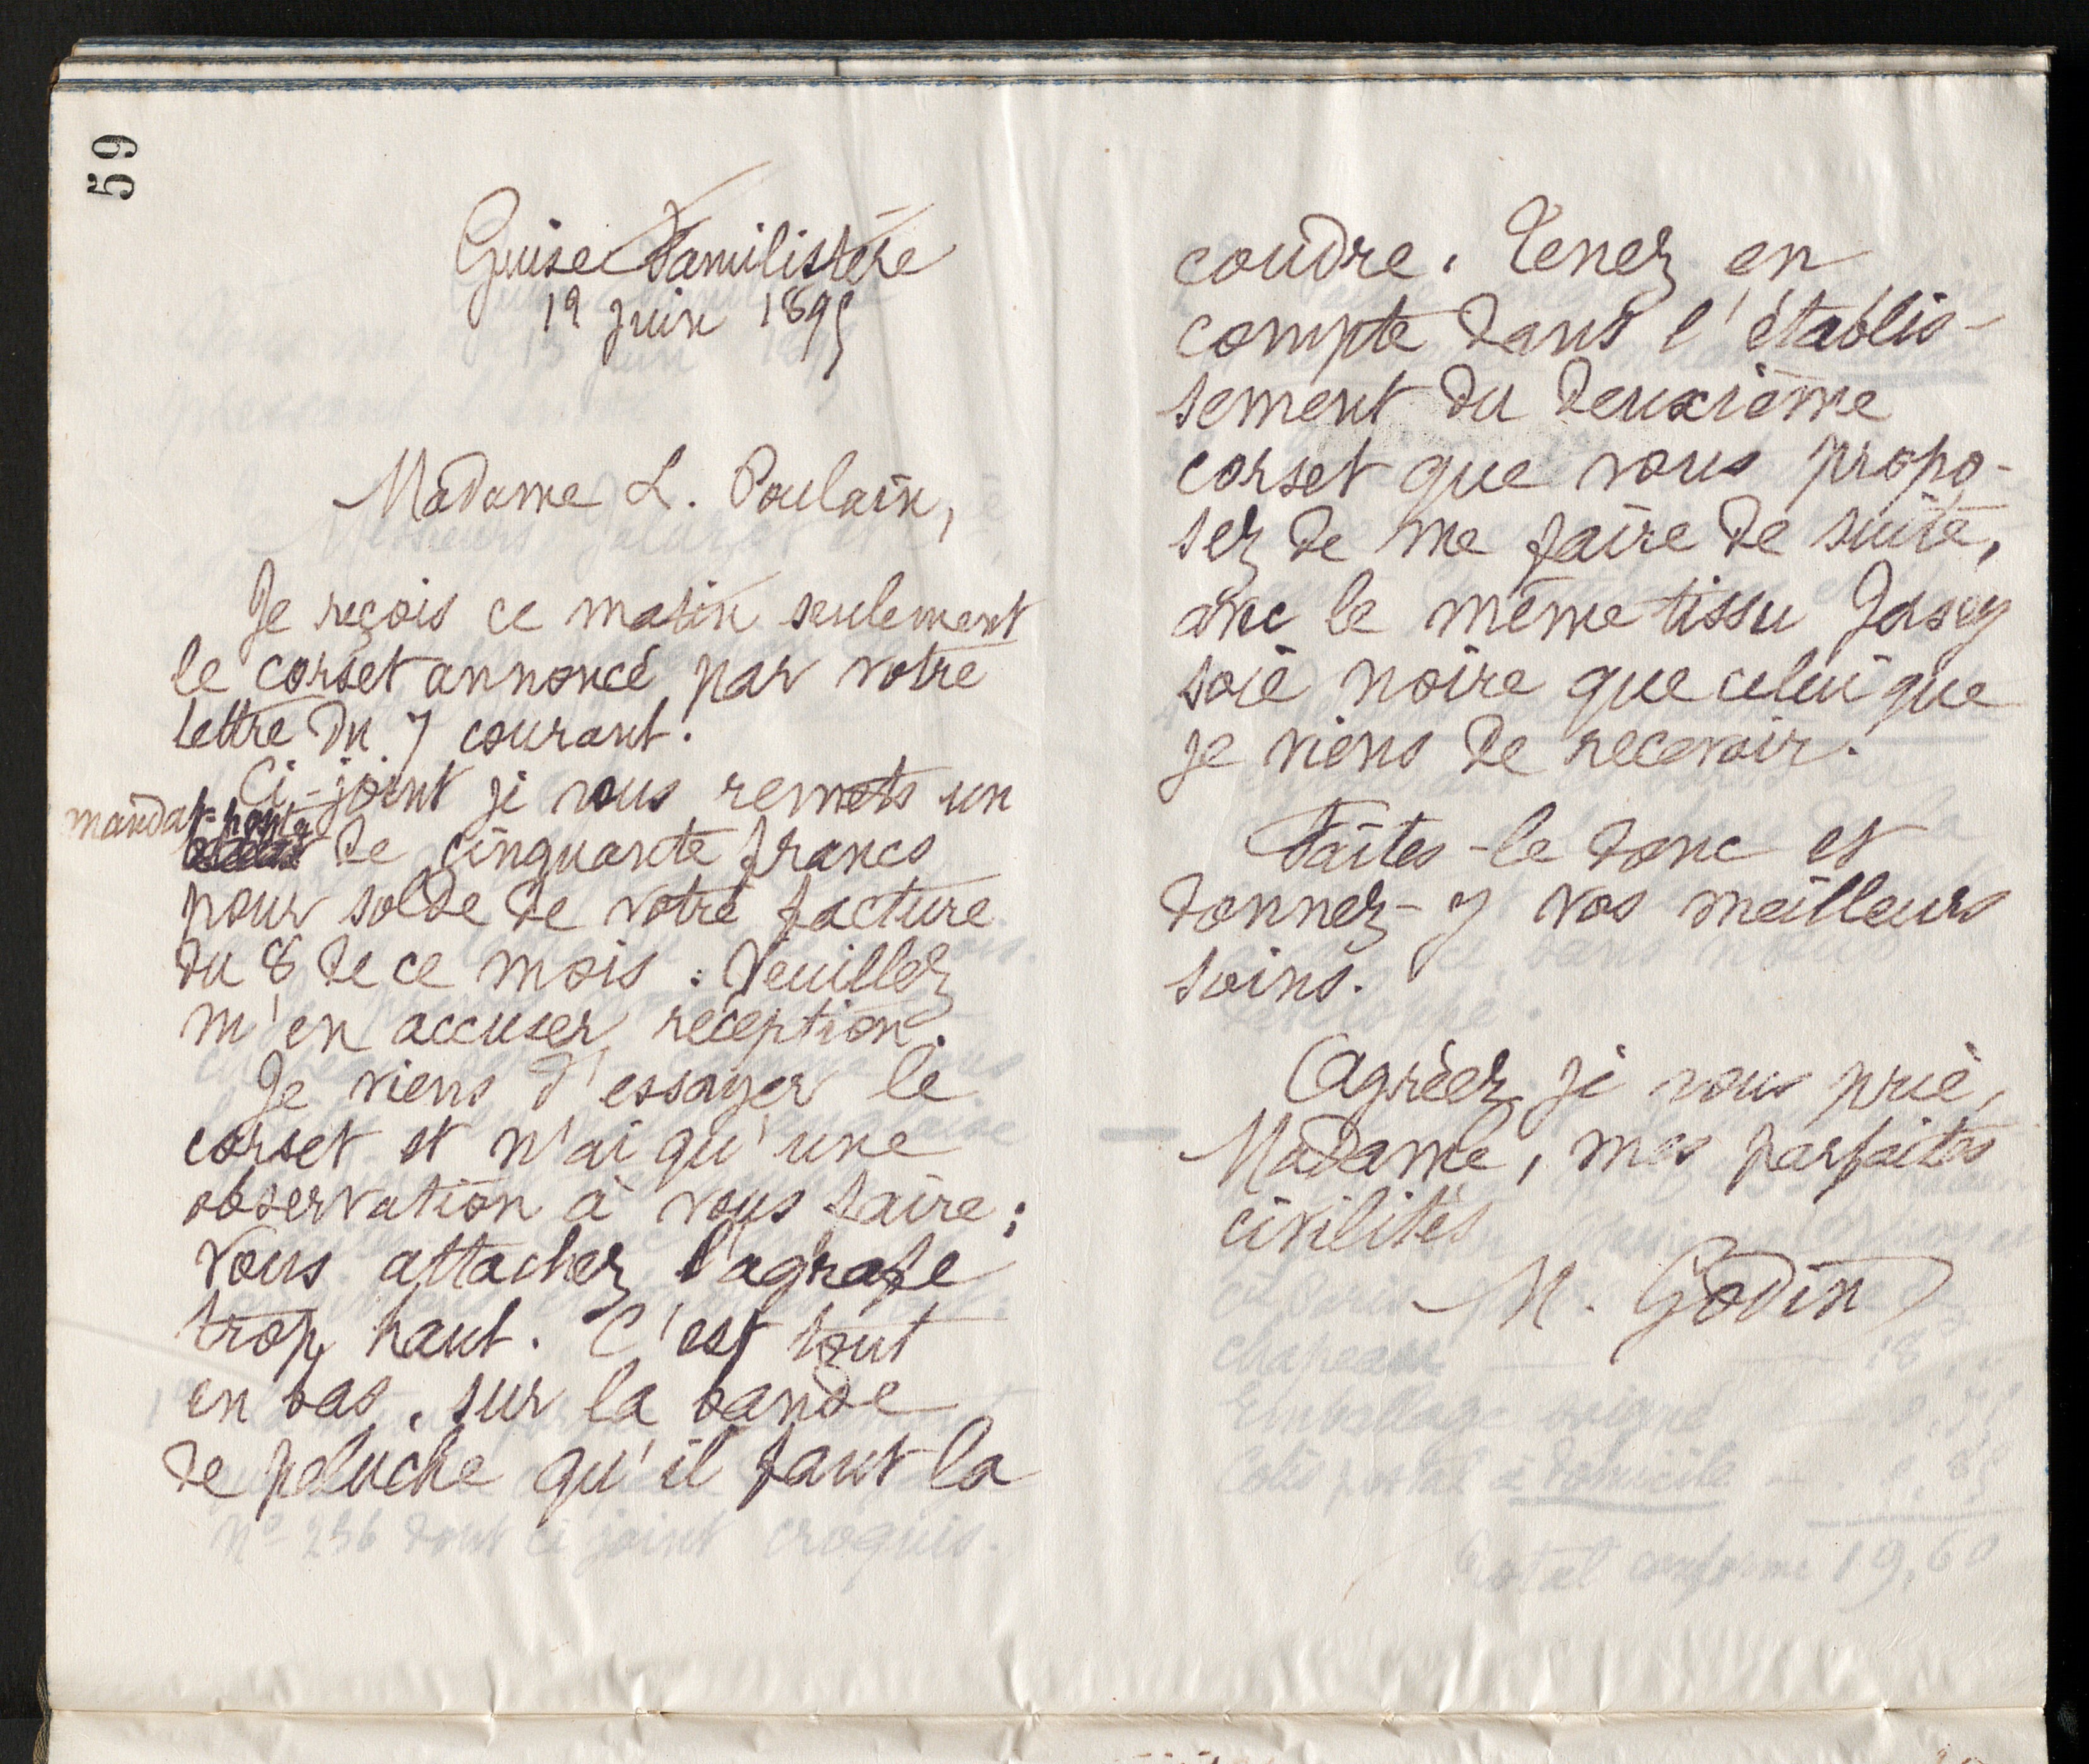 59
Guise Familistère
19 juin 1895
Madame L. Poulain,
Je reçois ce matin seulement
le corset annoncé par votre
lettre du 7 courant.
Ci-joint je vous remets un
mandat-poste de cinquante francs
pour solde de votre facture
du 8 de ce mois : Veuillez
m'en accuser réception.
Je viens d'essayer le
corset et n'ai qu'une
observation à vous faire :
Vous attachez l'agrafe
trop haut. C'est tout
en bas, sur la bande
de peluche qu'il faut la
coudre. Tenez en
compte dans l'établis-
sement du deuxième
corset que vous propo-
sez de me faire de suite,
avec le même tissu Jersey
soie noire que celui que
je viens de recevoir.
Faites-le donc et
donnez-y vos meilleurs
soins.
Agréez, je vous prie,
Madame, mes parfaites
civilités
M. Godin